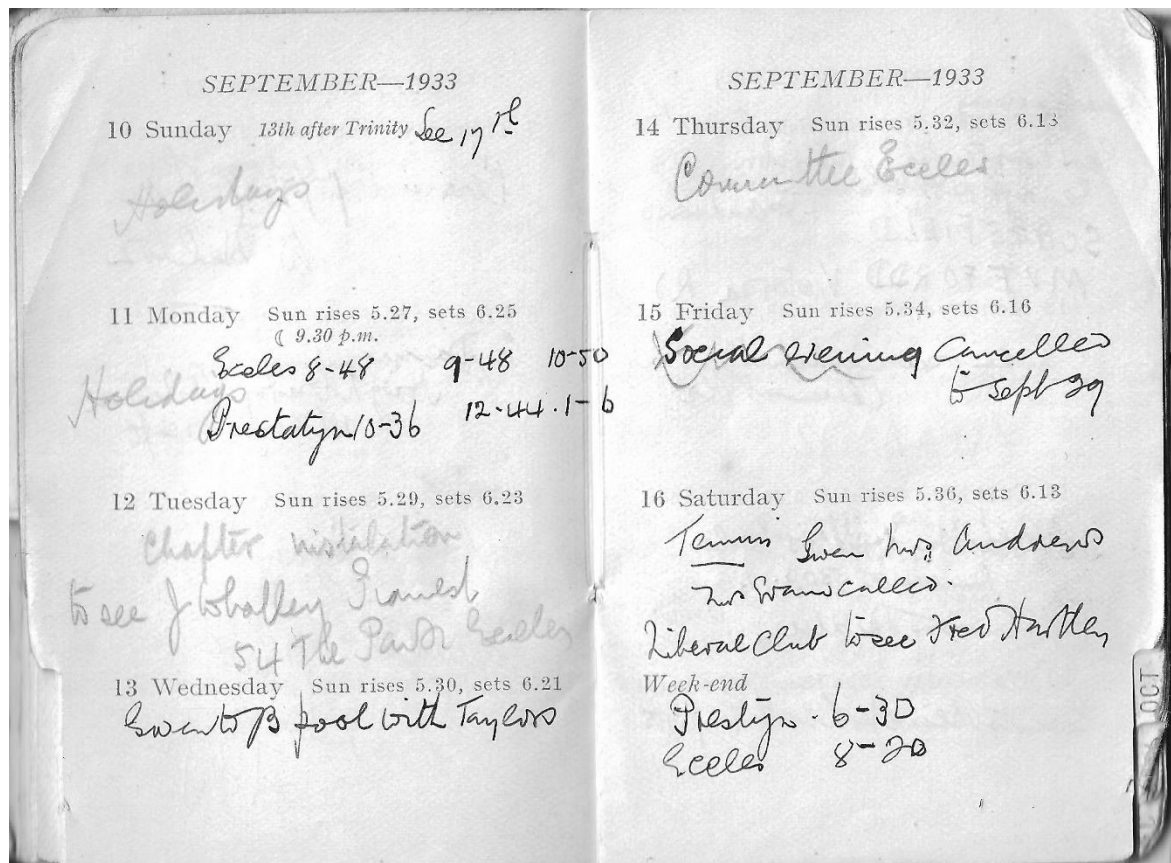 SEPTEMBER—1933
10 Sunday 13th after Trinity See 17th
Holidays
11 Monday Sun rises 5.27, sets 6.25
☾ 9.30 p.m.
Eccles 8-48 9-48 10-50
Holidays
Prestatyn 10-36 12-44. 1-6
12 Tuesday Sun rises 5.29, sets 6.23
Chapter
to see J Whalley
54 The Park Eccles
13 Wednesday Sun rises 5.30, sets 6.21
Gwen to B pool with Taylors
SEPTEMBER—1933
14 Thursday Sun rises 5.32, sets 6.18
Committee Eccles
15 Friday Sun rises 5.34, sets 6.16
Social evening Cancelled
to Sept 29
16 Saturday Sun rises 5.36, sets 6.13
Tennis Gwen Mrs Andrews
Mrs Evans called.
Liberal Club to see Fred Hartley
Week-end
Prestyn. 6-30
Eccles 8-20
OCT